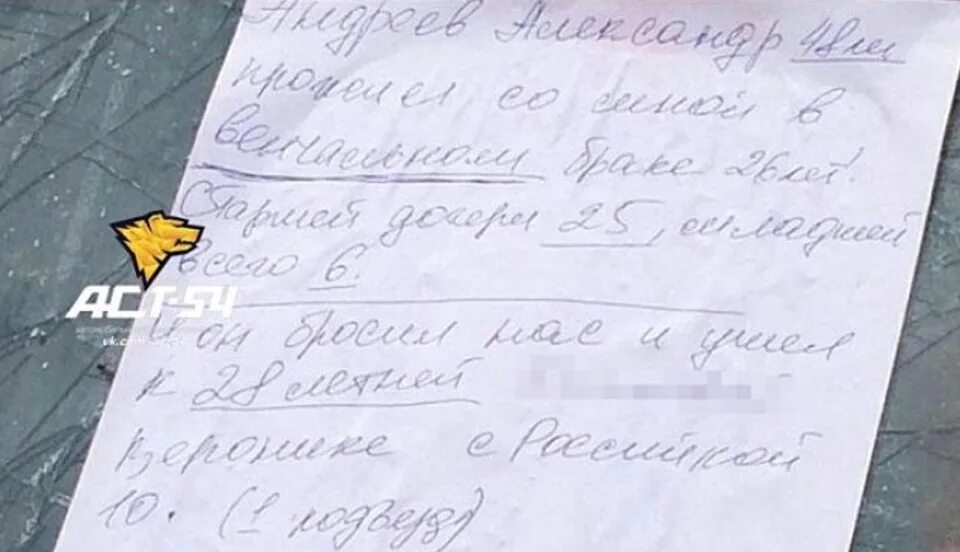 Андреев Александр 48 лет
прожил со мной в
венчальном браке 26 лет!
Старшей дочери 25, младшей
всего 6.
И он бросил нас и ушел
к 28 летней
Веронике с Российской
10. (1 подъезд)
АСТ-54